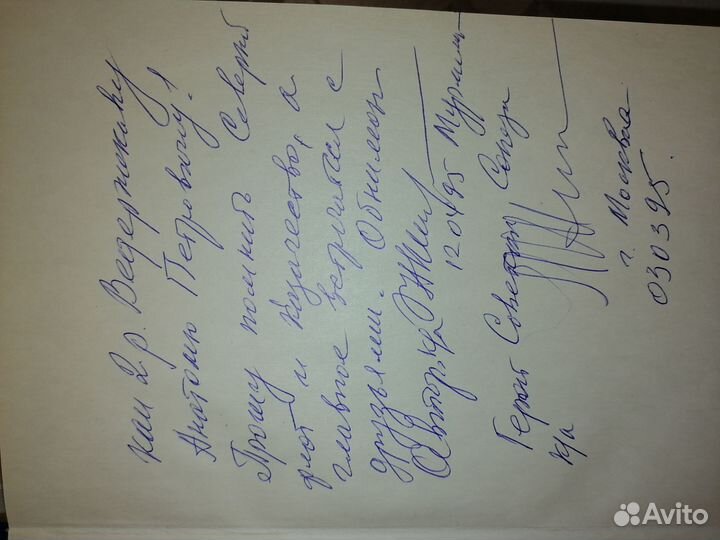 кап 2.р. Ведерникову
Анатолию Петровичу!
Прошу помнить Северный
флот и казачество, а
главное встречаться с
друзьями. Обнимаю
Автор, к/а
12 04 95 Мурманск
Герой Советского Союза
к/а
г. Москва
030395.
Avito